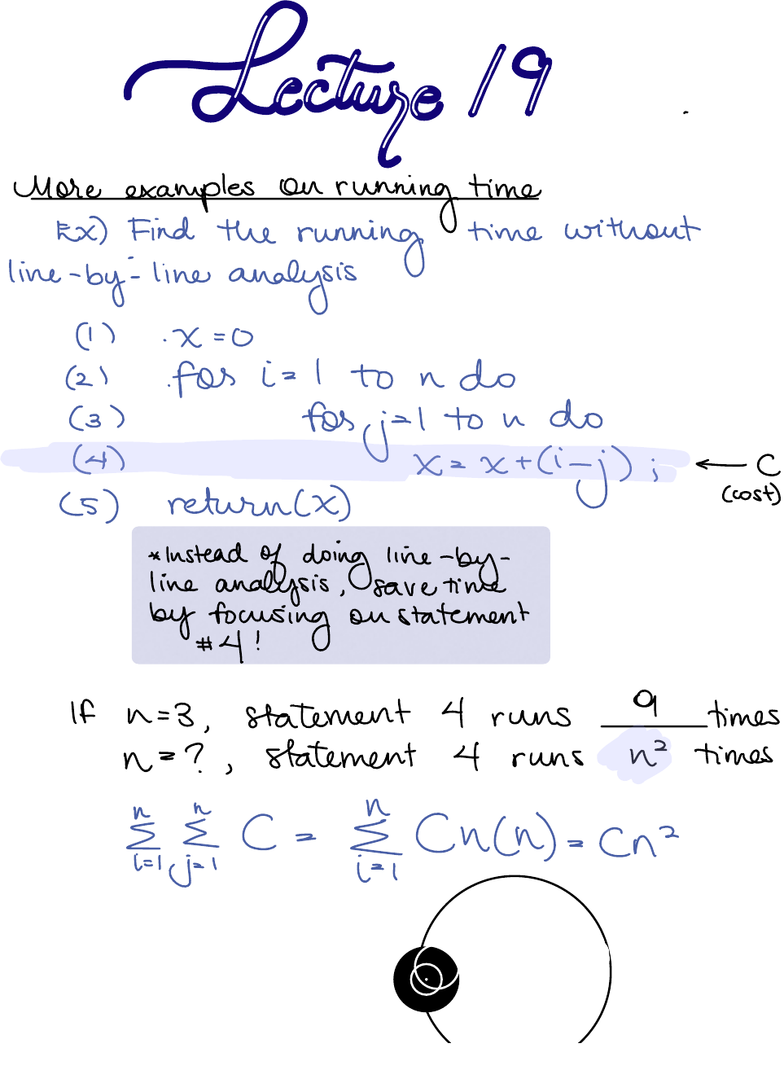 Lecture 19
More examples on running time
Ex) Find the running time without
line-by-line analysis
(1) x=0
(2) for i=1 to n do
(3) for j=1 to n do
(4) x=x+(i-j); ← C
(cost)
(5) return(x)
*Instead of doing line-by-
line analysis, save time
by focusing on statement
#4!
If n=3, statement 4 runs 9 times
n=?, statement 4 runs n² times
n n n
Σ Σ C = Σ Cn(n) = Cn²
i=1 j=1 i=1